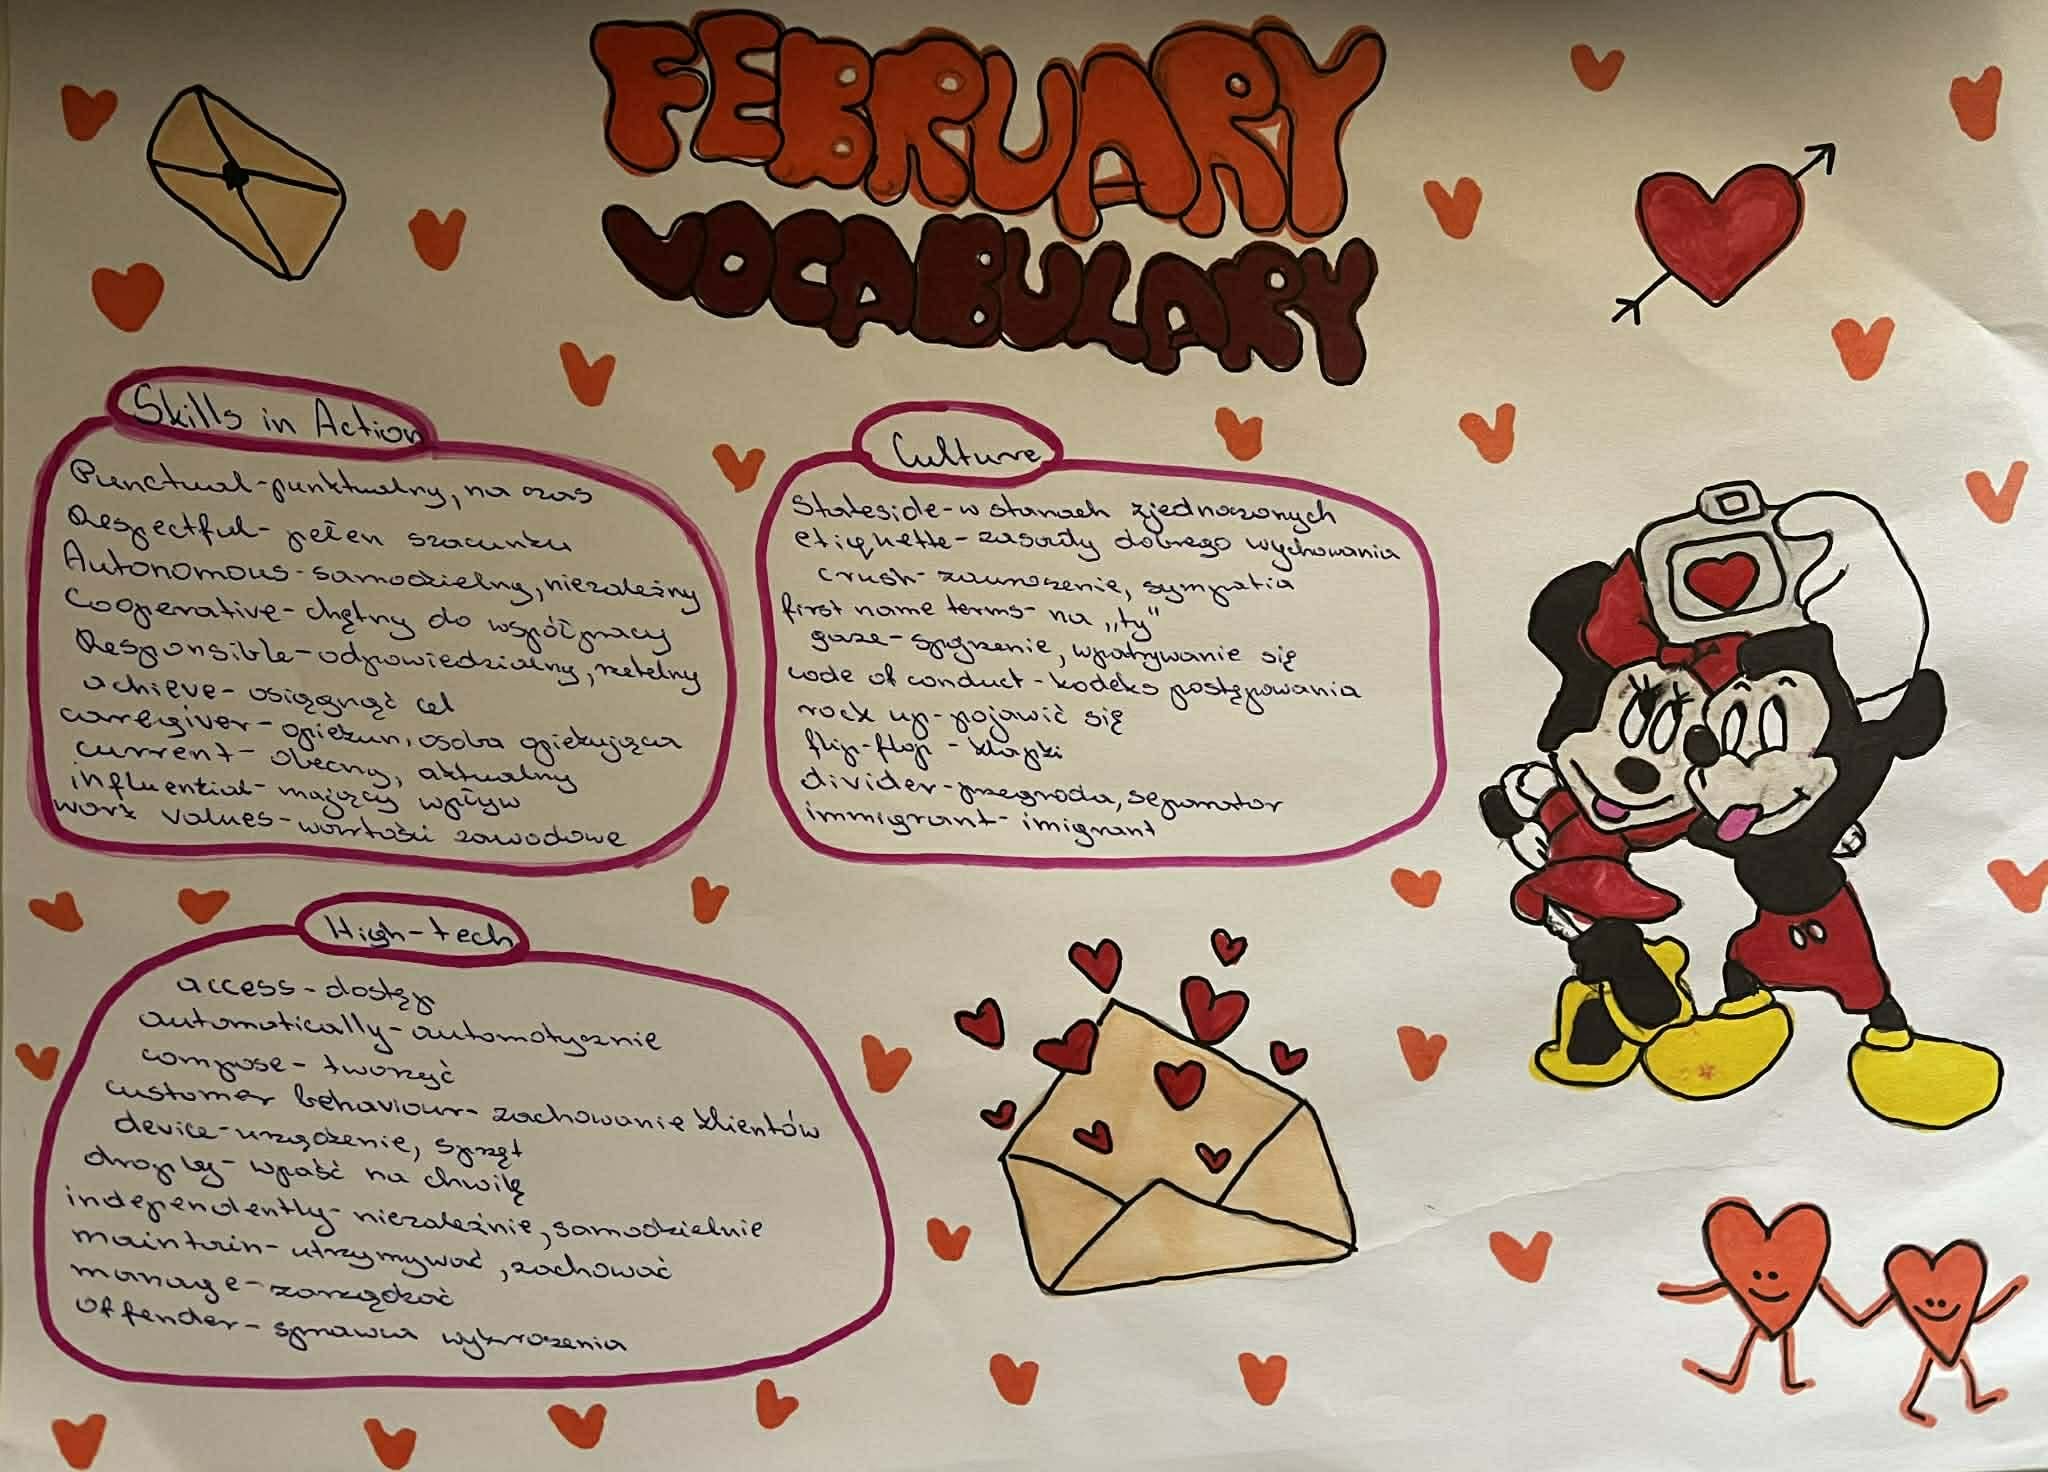 FEBRUARY
VOCABULARY
Skills in Action
Punctual - punktualny, na czas
Respectful - pełen szacunku
Autonomous - samodzielny, niezależny
Cooperative - chętny do współpracy
Responsible - odpowiedzialny, rzetelny
achieve - osiągnąć cel
caregiver - opiekun, osoba opiekująca
current - obecny, aktualny
influential - mający wpływ
work values - wartości zawodowe
Culture
Stateside - w stanach zjednoczonych
etiquette - zasady dobrego wychowania
crush - zauroczenie, sympatia
first name terms - na „ty"
gaze - spojrzenie, wpatrywanie się
code of conduct - kodeks postępowania
rock up - pojawić się
flip-flop - klapki
divider - przegroda, separator
immigrant - imigrant
High-tech
access - dostęp
automatically - automatycznie
compose - tworzyć
customer behaviour - zachowanie klientów
device - urządzenie, sprzęt
drop by - wpaść na chwilę
independently - niezależnie, samodzielnie
maintain - utrzymywać, zachować
manage - zarządzać
offender - sprawca wykroczenia